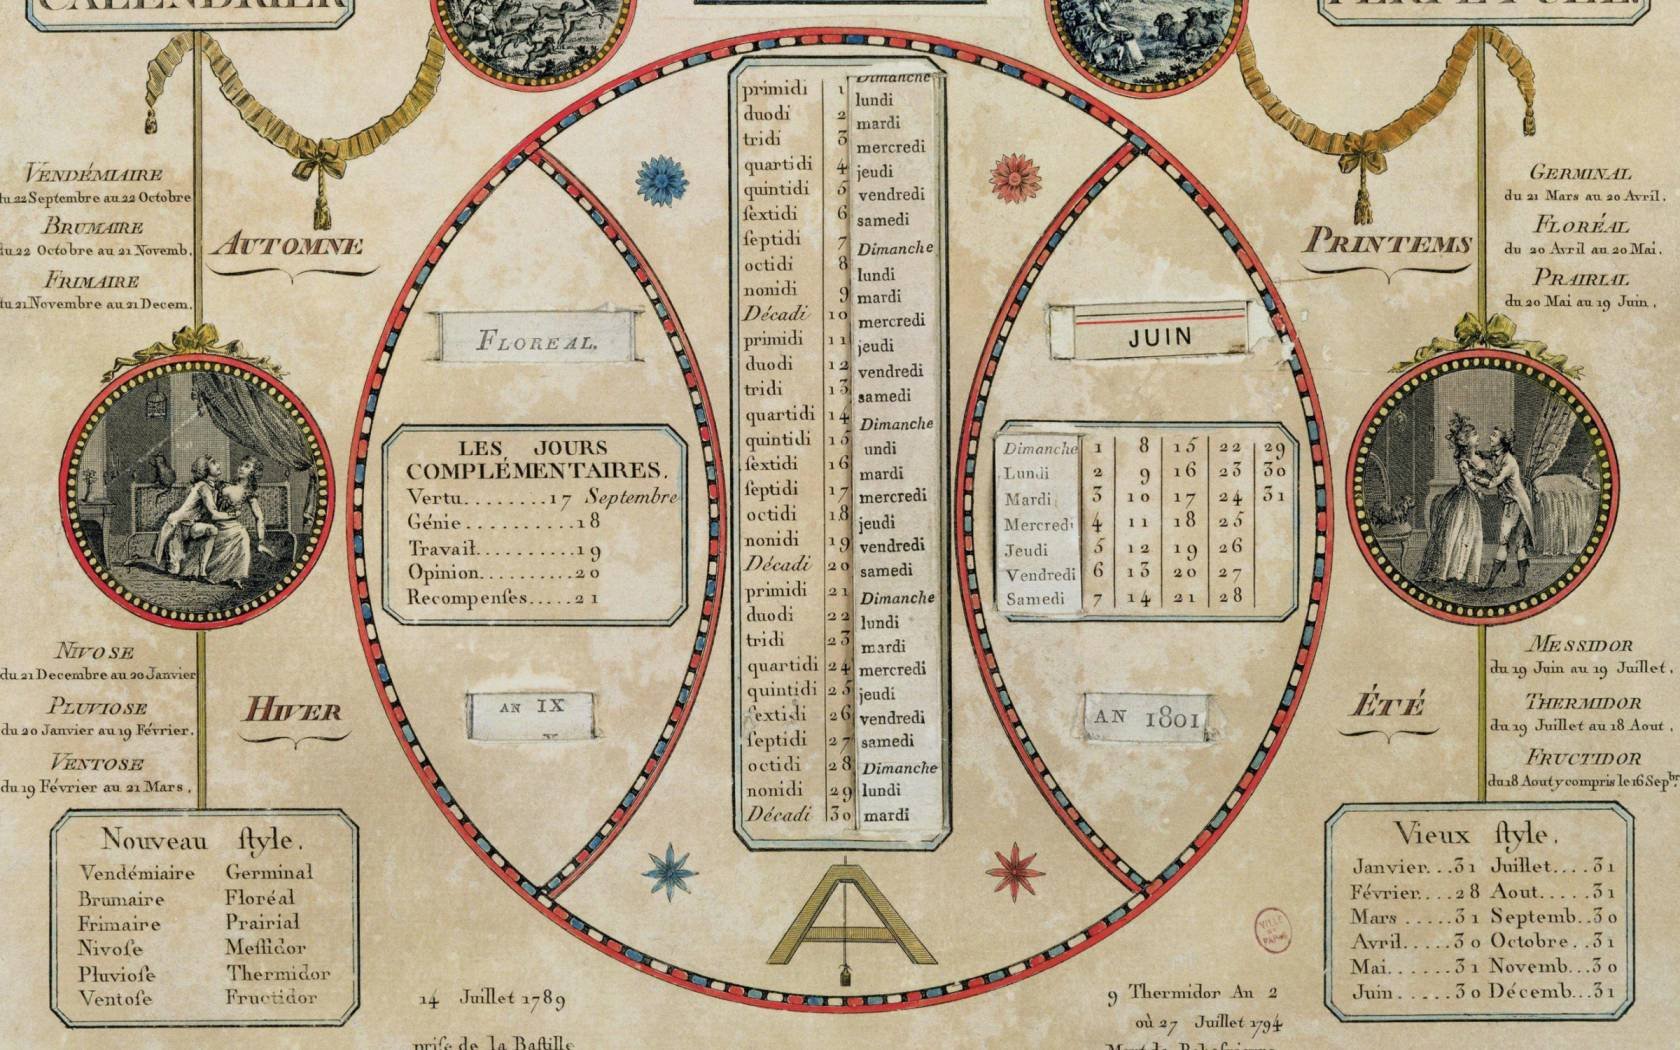 CALENDRIER
PERPÉTUEL.
VENDÉMIAIRE
du 22 Septembre au 22 Octobre
BRUMAIRE
du 22 Octobre au 21 Novemb.
FRIMAIRE
du 21 Novembre au 21 Decem.
AUTOMNE
NIVOSE
du 21 Decembre au 20 Janvier
PLUVIOSE
du 20 Janvier au 19 Février.
VENTOSE
du 19 Février au 21 Mars.
HIVER
Nouveau ſtyle.
Vendémiaire Germinal
Brumaire Floréal
Frimaire Prairial
Nivoſe Meſſidor
Pluvioſe Thermidor
Ventoſe Fructidor
FLOREAL.
LES JOURS
COMPLÉMENTAIRES.
Vertu........17 Septembre
Génie..........18
Travail..........19
Opinion.........20
Recompenſes.....21
AN IX
Dimanche
primidi 1 lundi
duodi 2 mardi
tridi 3 mercredi
quartidi 4 jeudi
quintidi 5 vendredi
ſextidi 6 samedi
ſeptidi 7 Dimanche
octidi 8 lundi
nonidi 9 mardi
Décadi 10 mercredi
primidi 11 jeudi
duodi 12 vendredi
tridi 13 samedi
quartidi 14 Dimanche
quintidi 15 undi
ſextidi 16 mardi
ſeptidi 17 mercredi
octidi 18 jeudi
nonidi 19 vendredi
Décadi 20 samedi
primidi 21 Dimanche
duodi 22 lundi
tridi 23 mardi
quartidi 24 mercredi
quintidi 25 jeudi
ſextidi 26 vendredi
ſeptidi 27 samedi
octidi 28 Dimanche
nonidi 29 lundi
Décadi 30 mardi
JUIN
Dimanche 1 8 15 22 29
Lundi 2 9 16 23 30
Mardi 3 10 17 24 31
Mercredi 4 11 18 25
Jeudi 5 12 19 26
Vendredi 6 13 20 27
Samedi 7 14 21 28
AN 1801
GERMINAL
du 21 Mars au 20 Avril.
FLORÉAL
du 20 Avril au 20 Mai.
PRAIRIAL
du 20 Mai au 19 Juin.
PRINTEMS
MESSIDOR
du 19 Juin au 19 Juillet.
THERMIDOR
du 19 Juillet au 18 Aout.
FRUCTIDOR
du 18 Aout y compris le 16 Sepbr.
ÉTÉ
Vieux ſtyle.
Janvier...31 Juillet....31
Février....28 Aout.....31
Mars.....31 Septemb..30
Avril.....30 Octobre..31
Mai......31 Novemb...30
Juin.....30 Décemb...31
VILLE DE PARIS
14 Juillet 1789
priſe de la Baſtille
9 Thermidor An 2
où 27 Juillet 1794